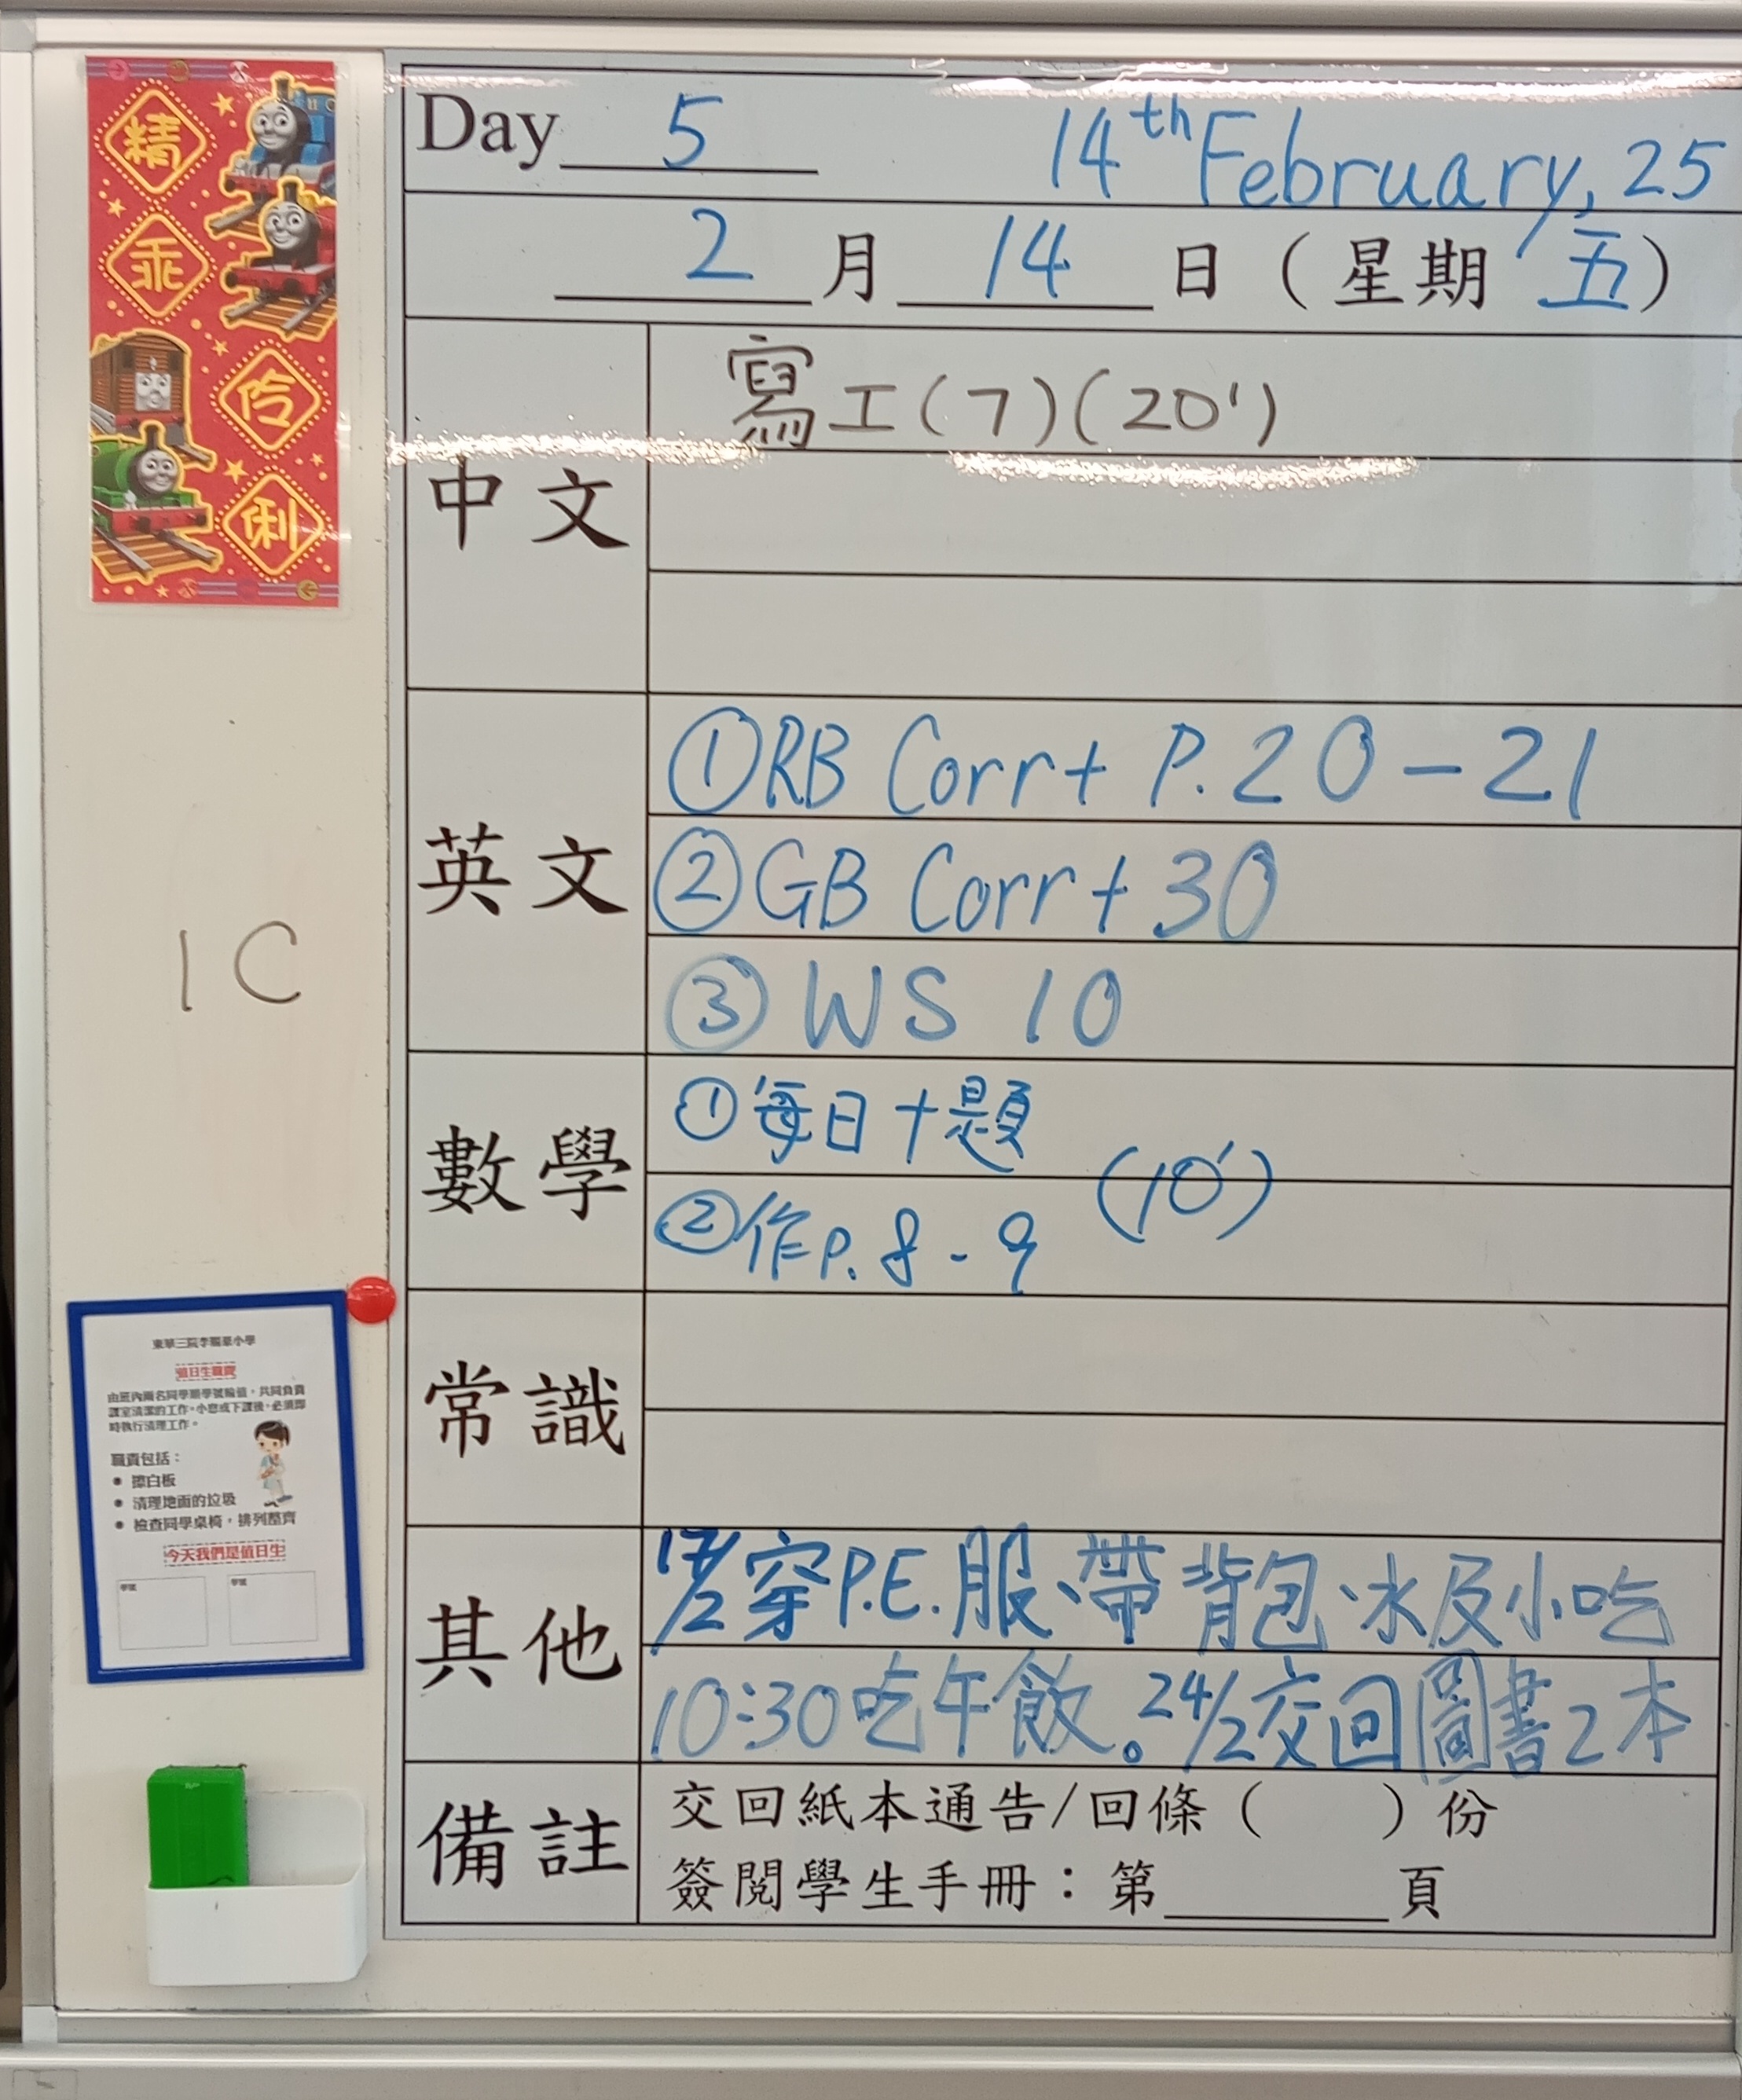 精
乖
伶
俐
Day 5 14th February, 25
2 月 14 日 ( 星期 五 )
中文
寫工(7)(20')
英文
①RB Corr+ P.20-21
②GB Corr+30
③ WS 10
1C
數學
①每日十題
(10')
②作P.8-9
常識
東華三院李賜豪小學
值日生職責
由班內兩名同學順學號輪值,共同負責
課室清潔的工作。小息或下課後,必須即
時執行清理工作。
職責包括:
• 擦白板
• 清理地面的垃圾
• 檢查同學桌椅,排列整齊
今天我們是值日生
學號 學號
其他
17/2穿P.E.服、帶背包、水及小吃
10:30吃午飯。24/2交回圖書2本
備註
交回紙本通告/回條( )份
簽閱學生手冊:第 頁